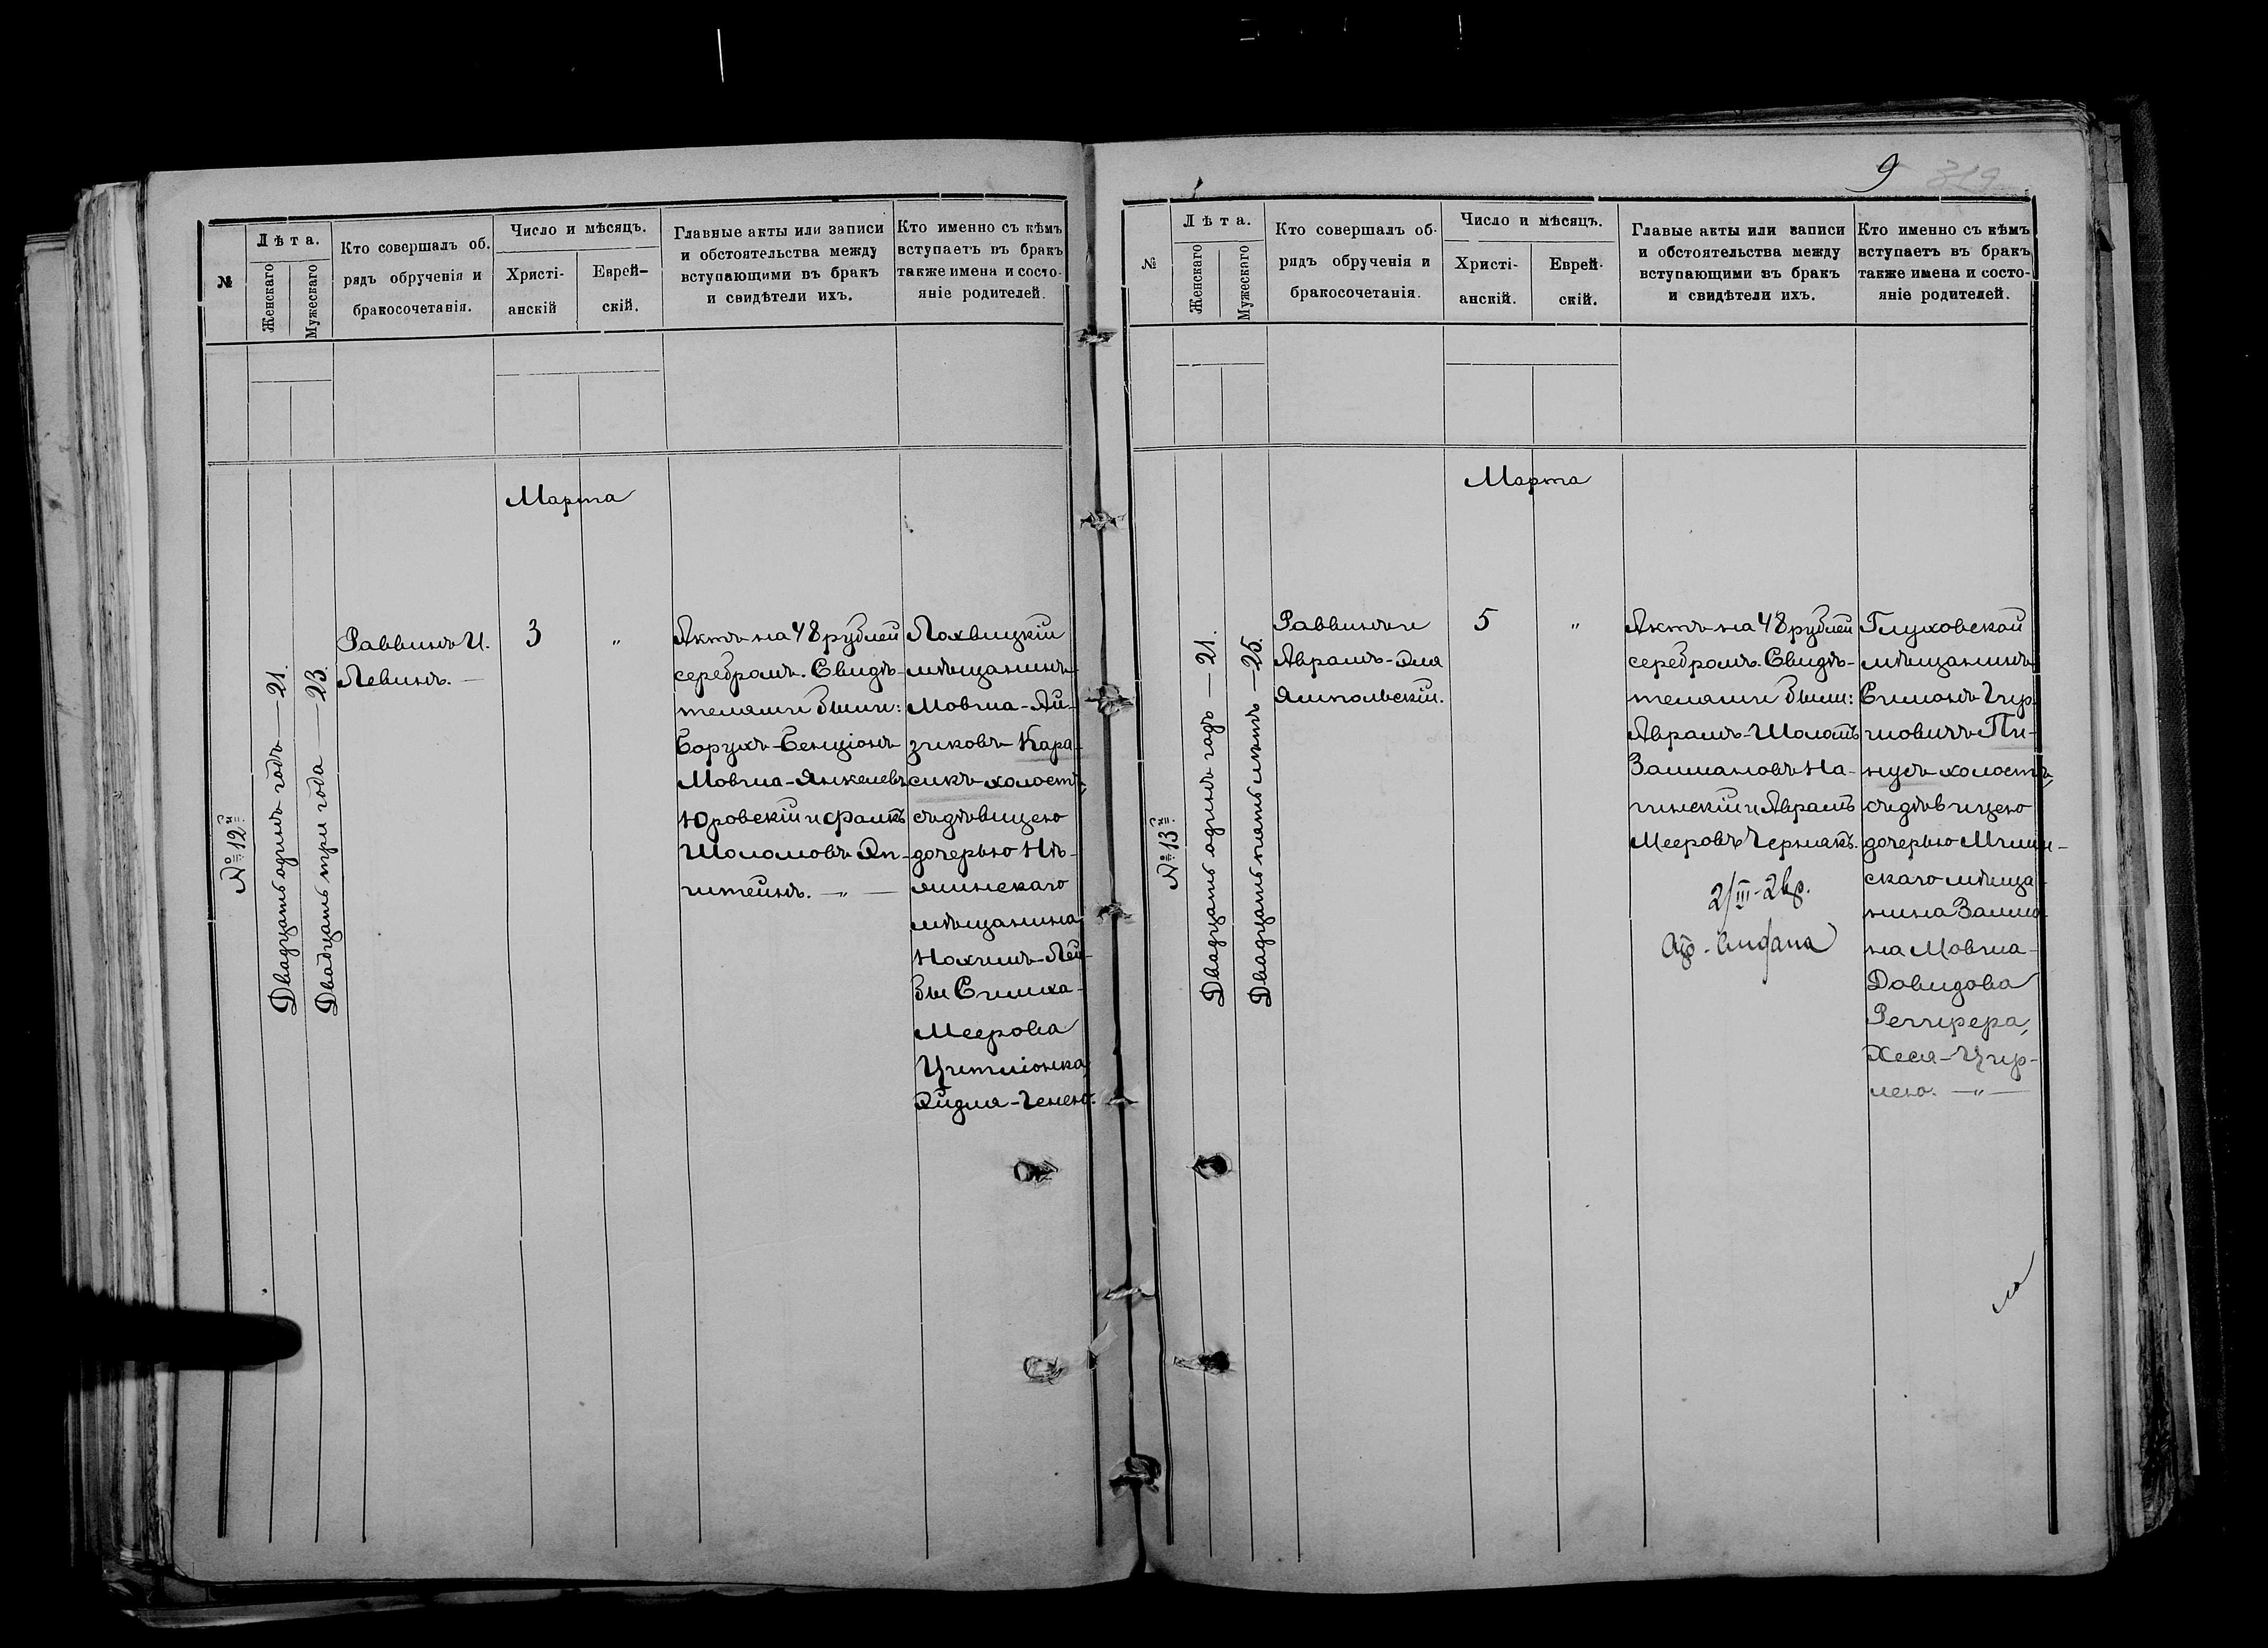 №
Лѣта.
Женскаго
Мужескаго
Кто совершалъ об.
рядъ обрученія и
бракосочетанія.
Число и мѣсяцъ.
Христі-
анскій
Еврей-
скій.
Главные акты или записи
и обстоятельства между
вступающими въ бракъ
и свидѣтели ихъ.
Кто именно съ кѣмъ
вступаетъ въ бракъ
также имена и состо-
яніе родителей.
Марта
№ 12й
Двадцать одинъ годъ — 21.
Двадцать три года — 23.
Раввинъ И.
Левинъ. —
3
"
Актъ на 48 рублей
серебромъ. Свидѣ-
телями были:
Борухъ-Бенціонъ
Мовша-Янкелевъ
Юровскій и Фалкъ
Шоломовъ Эп-
штейнъ. — " —
Лохвицкій
мѣщанинъ
Мовша-Ай-
зиковъ Кара-
сикъ холостъ,
съ дѣвицею
дочерью Нѣ-
жинскаго
мѣщанина
Нохимъ-Лей-
бы Симха-
Меерова
Эйдля-Генею.
9
319
№
Лѣта.
Женскаго
Мужескаго
Кто совершалъ об-
рядъ обрученія и
бракосочетанія.
Число и мѣсяцъ.
Христі-
анскій.
Еврей-
скій.
Главые акты или записи
и обстоятельства между
вступающими въ бракъ
и свидѣтели ихъ.
Кто именно съ кѣмъ
вступаетъ въ бракъ
также имена и состо-
яніе родителей.
Марта
№ 13й
Двадцать одинъ годъ — 21.
Двадцать пять лѣтъ — 25.
Раввинъ и
Аврамъ-Эля
Ямпольскій.
5
"
Актъ на 48 рублей
серебромъ. Свидѣ-
телями были:
Аврамъ-Шоломъ
Залмановъ На-
гинскій и Аврамъ
Мееровъ Чернякъ.
2/III-2
Глуховской
мѣщанинъ
Симонъ Гир-
шовичъ Пи-
нусъ холостъ,
съ дѣвицею
дочерью Мглин-
скаго мѣща-
нина Залма-
на Мовша-
Давидова
Хеся-Цир-
лею. — " —